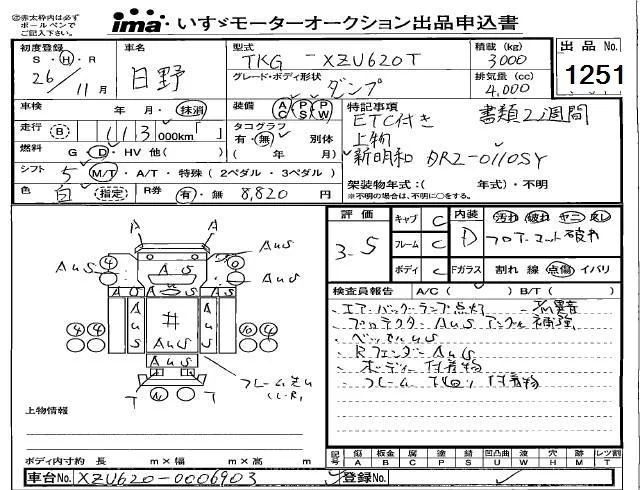 ②赤太枠内は必ず
ボールペンで
ご記入下さい。
ima いすゞモーターオークション出品申込書
初度登録 車名 型式 積載 (kg) 出品 No.
S・H・R 26/11月 日野 TKG-XZU620T 3000 1251
グレード・ボディ形状 ダンプ 排気量 (cc) 4,000
車検 年 月・抹消 装備 AC PS PW 特記事項 書類2週間
ETC付き
走行 B 113000km「 」 タコグラフ 有・無 別体 上物
燃料 G・D・HV 他( ) ( 年 月) 新明和 DR2-0110SY
シフト 5 M/T・A/T・特殊 (2ペダル・3ペダル) 架装物年式:( 年式)・不明
色 白 (指定) R券 有・無 8,820 円 ※不明の場合は、不明に○をする。
評価 3.5 キャブ C 内装 D 汚れ 破れ ヤニ 臭し
フレーム C フロアーマット破れ
ボディ C Fガラス 割れ 線 点傷 イバリ
検査員報告 A/C( ) B/T( )
エアーバックランプ点灯
プロテクタ AUS アングル補強
ベッセルUS
Rフェンダー AUS
ボディー 付着物
フレーム 付着物
AUS
AUS AUS
A U S A U S
AUS AUS
AUS
AUS
フレーム
(L-R)
T T
上物情報
ボディ内寸約 長 m×幅 m×高 m
記号 傷 A 板金 B 腐 C 塗 P 錆 S 凹凸曲 U 波 W 穴 H 跡 M レツ割 T
車台No. XZU620-0006903 登録No.